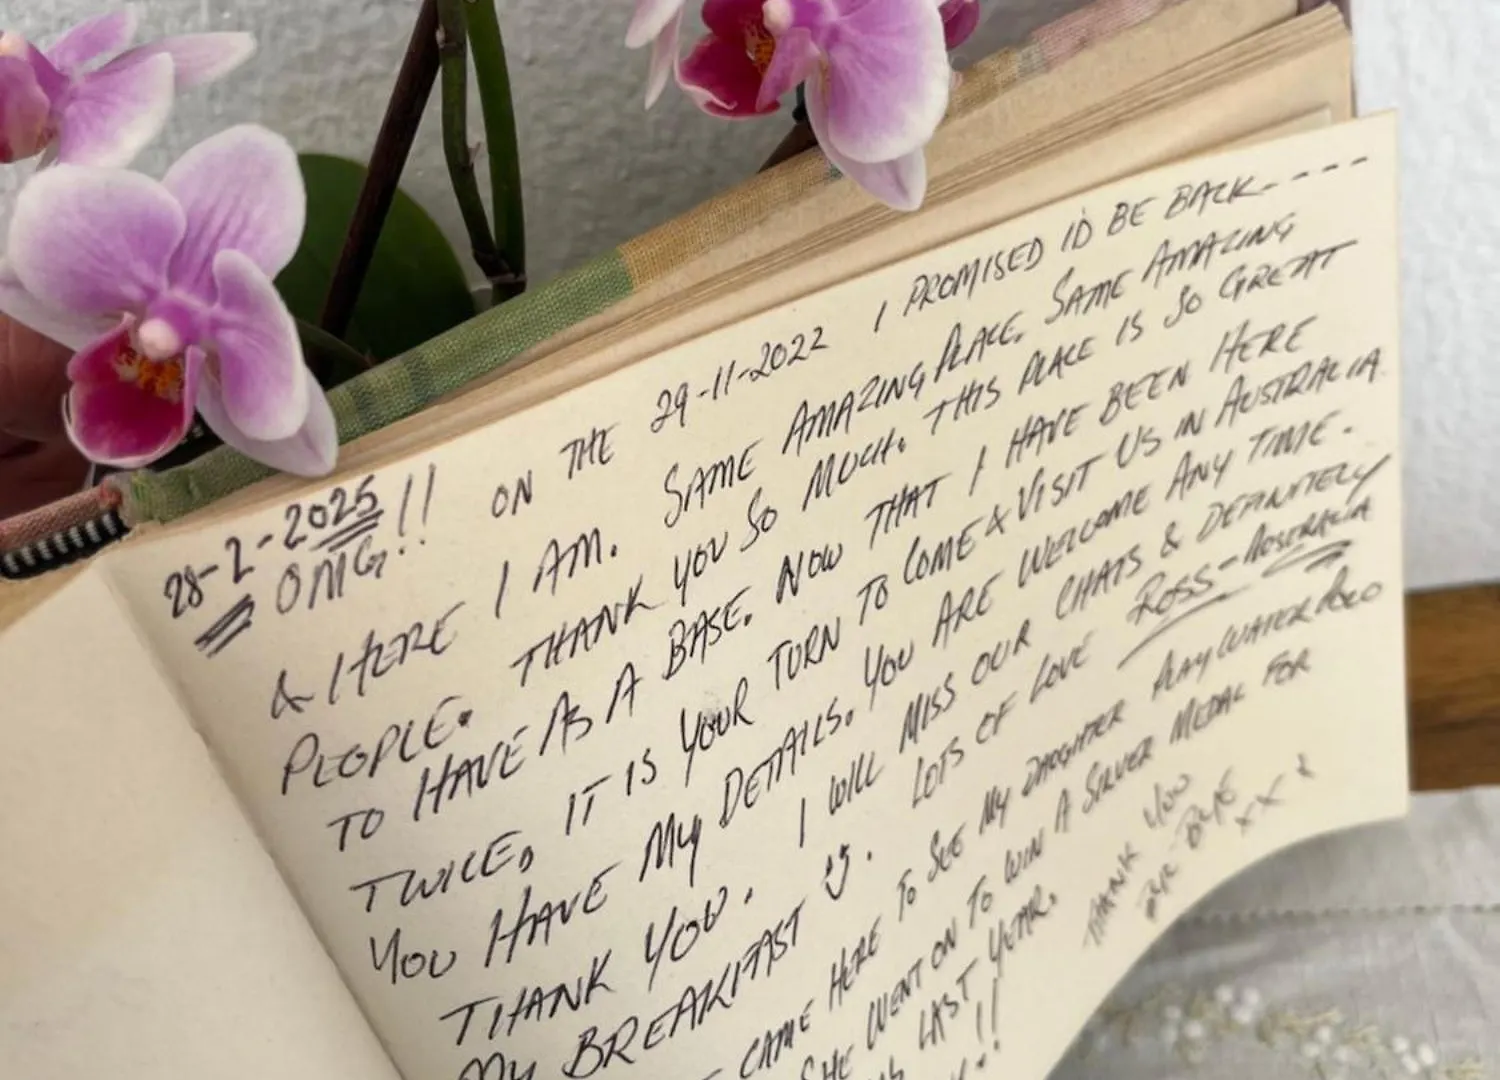 28-2-2025!!
OMG!! ON THE 29-11-2022 I PROMISED I'D BE BACK-----
& HERE I AM. SAME AMAZING PLACE. SAME AMAZING
PEOPLE. THANK YOU SO MUCH. THIS PLACE IS SO GREAT
TO HAVE AS A BASE. NOW THAT I HAVE BEEN HERE
TWICE, IT IS YOUR TURN TO COME & VISIT US IN AUSTRALIA.
YOU HAVE MY DETAILS. YOU ARE WELCOME ANY TIME.
THANK YOU. I WILL MISS OUR CHATS & DEFINITELY
MY BREAKFAST. LOTS OF LOVE ROSS-AUSTRALIA
CAME HERE TO SEE MY DAUGHTER PLAY WATER POLO
SHE WENT ON TO WIN A SILVER MEDAL FOR
LAST YEAR. THANK YOU
!! BYE BYE
xxx